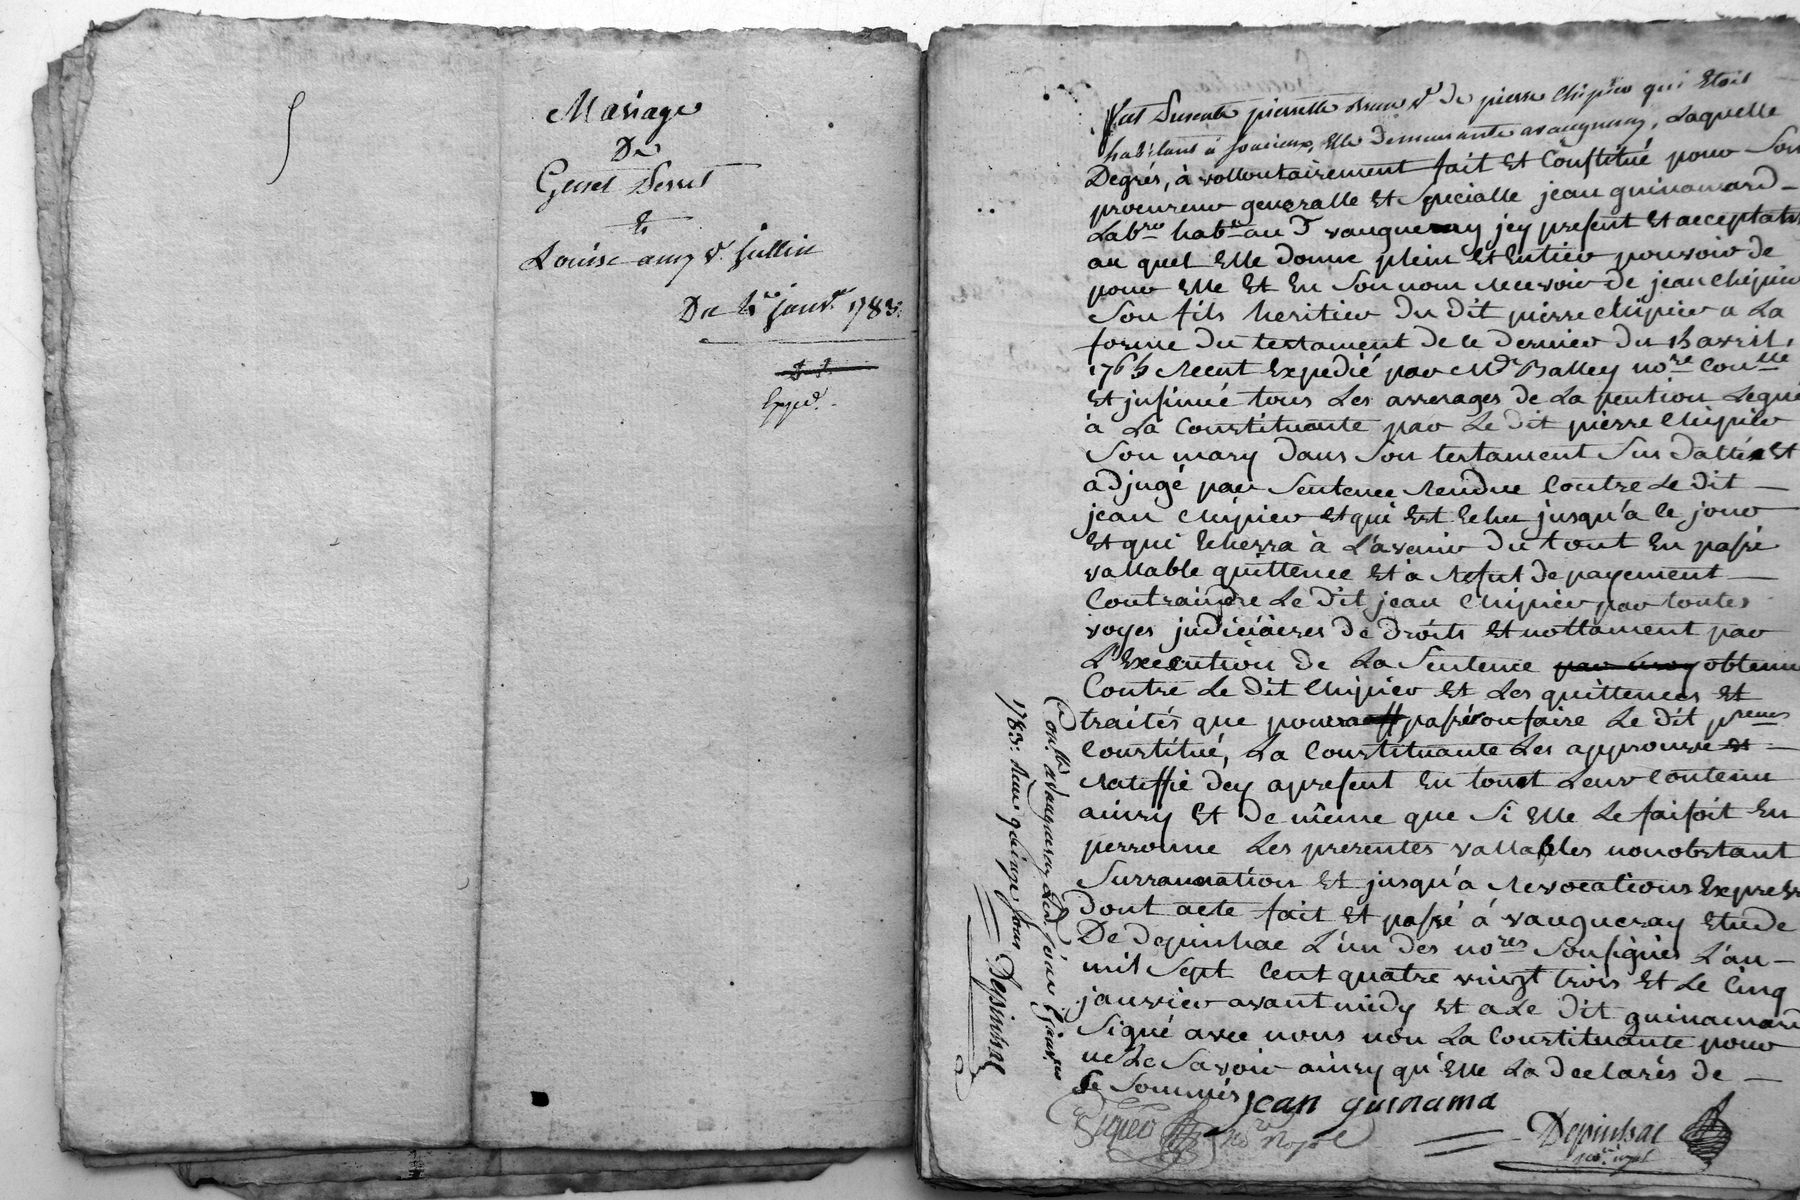 Mariage
De
Genet Serret
&
Louise amy v.e Jullin
Du 4.e janv.er 1783.
Expéd.
fut presente pierrette v.e de pierre chipier qui etoit
habitant a soucieux, elle demeurante a vaugneray, Laquelle
Degrés, à vollontairement fait et Constitué pour Son
procureur generalle et Specialle jean guinamard –
Lab.r hab.t au d.t vaugneray jcy present et acceptant
au quel elle donne plein et Entier pouvoir de
pour elle et En Son nom recevoir de jean chipier
Son fils heritier du dit pierre chipier a La
forme du testament de ce dernier du 13 avril
1765 recut expedié par M.e Balley no.re
et jnsinué tous Les arrerages de La pention Legué
à La Constituante par Le dit pierre chipier
Son mary dans Son testament Sus datté et
adjugé par Sentence rendue Contre Le dit –
jean chipier et qui est Echu jusqu'a ce jour
et qui Echerra à L'avenir du tout En passé
vallable quittence et a refut de payement –
Contraindre Le dit jean chipier par toutes
voyes judiciaires de droits et nottament par
L'Execution de La Sentence obtenue
Contre Le dit chipier et Les quittences et
traités que pourra passé ou faire Le dit
Constitué, La Constituante Les approuve et –
Ratiffie dey apresent En tout Leur Contenu
ainsy et de même que Si elle Le faisoit En
personne Les presentes vallables nonobstant
Surrannation et jusqu'a revocations Expresse
Dont acte fait et passé à vaugneray Etude
De Depinhac L'un des no.res Sousignés L'an –
mil Sept Cent quatre vingt trois et Le Cinq
janvier avant midy et a Le dit guinamard
Signé avec nous non La Constituante pour
ne Le Savoir ainsy qu'elle La declarés de –
Ce Sommés jean guinama
no.re royal
Depinhac
no.re royal
Con.llé a vaugneray Led. jour janv.er
1783: Reçu quinze sous Depinhac